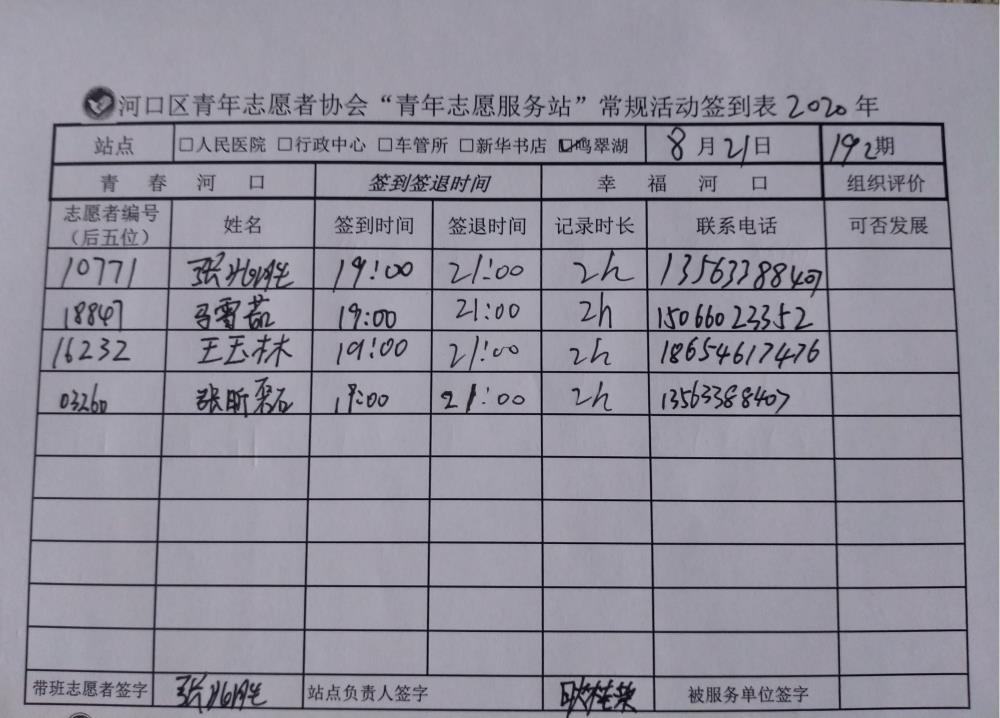 河口区青年志愿者协会“青年志愿服务站”常规活动签到表 2020 年
站点 □人民医院 □行政中心 □车管所 □新华书店 ☑鸣翠湖 8月21日 192期
青春河口 签到签退时间 幸福河口 组织评价
志愿者编号（后五位） 姓名 签到时间 签退时间 记录时长 联系电话 可否发展
10771 张 19:00 21:00 2h 13563388407
18847 马雪茹 19:00 21:00 2h 15066023352
16232 王玉林 19:00 21:00 2h 18654617476
03260 张昕 19:00 21:00 2h 13563388407
带班志愿者签字 张 站点负责人签字 被服务单位签字